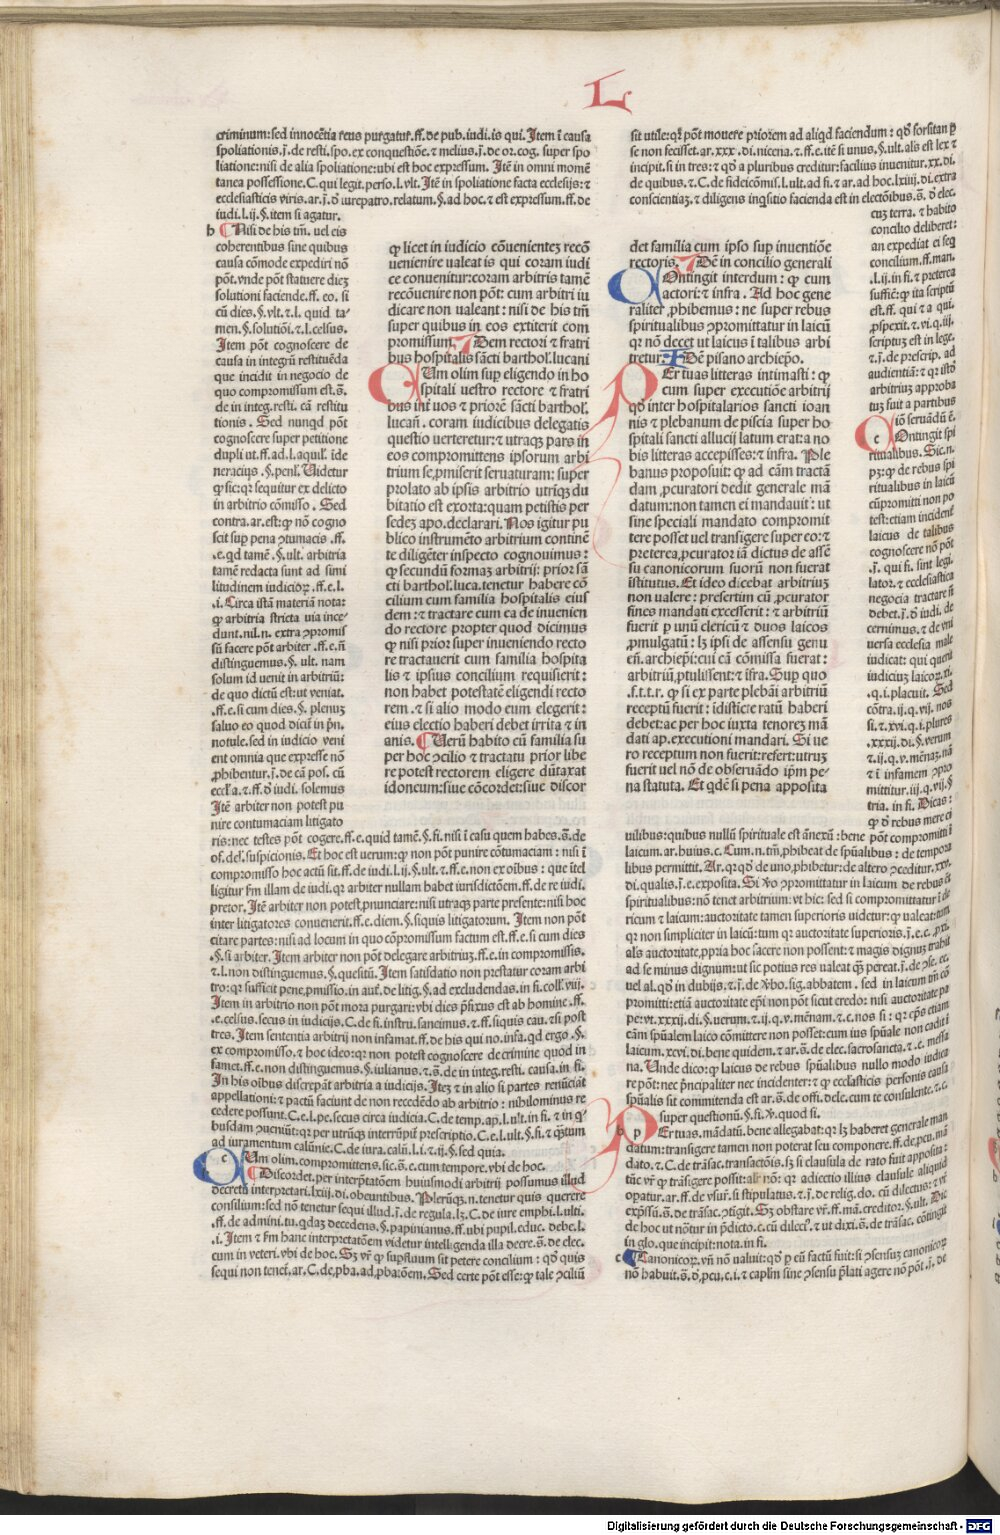 L
criminum: sed innocẽtia reus purgatur. ff. de pub. iudi. is qui. Itẽ ĩ causa
spoliationis. j̃. de resti. spo. ex conquestiõe. ⁊ melius. j̃. de or. cog. super spo
liatione: nisi de alia spoliatione: ubi est hoc expressum. Itẽ in omni momẽ
tanea possessione. C. qui legit. perso. l. vlt. Itẽ in spoliatione facta ecclesijs: ⁊
ecclesiasticis viris. ar. j̃. ð iurepatro. relatum. §. ad hoc. ⁊ est expressum. ff. de
iudi. l. ij. §. item si agatur.
b Nisi de his tm̃. uel eis
coherentibus sine quibus
causa cõmode expediri nõ
põt. vnde põt statuere diez
solutioni faciende. ff. eo. si
cũ dies. §. vlt. ⁊ l. quid ta-
men. §. solutiõi. ⁊ l. celsus.
Item põt cognoscere de
causa in integrũ restituẽda
que incidit in negocio de
quo compromissum est. s̃.
de in integ. resti. cã restitu
tionis. Sed nunqd põt
cognoscere super petitione
dupli ut. ff. ad l. aquil. ĩde
neracius. §. penl. Uidetur
ꝙ sic: qr sequitur ex delicto
in arbitrio cõmisso. Sed
contra. ar. est: ꝙ nõ cogno
scit sup pena ↄtumacis. ff.
.e. qd tamẽ. §. ult. arbitria
tamẽ redacta sunt ad simi
litudinem iudiciorꝝ. ff. e. l.
.i. Circa istã materiã nota:
ꝙ arbitria stricta uia ince-
dunt. nil. n. extra ↄpromis
sũ facere põt arbiter. ff. e. ñ
distinguemus. §. ult. nam
solum id uenit in arbitriũ:
de quo dictũ est: ut veniat.
.ff. e. si cum dies. §. plenuz
saluo eo quod dicit̃ in p̃n.
notule. sed in iudicio veni
ent omnia que expresse nõ
ꝓhibentur. j̃. de cã pos. cũ
eccl'a. ⁊. ff. ð iudi. solemus
Itẽ arbiter non potest pu
nire contumaciam litigato
ris: nec testes põt cogere. ff. e. quid tamẽ. §. fi. nisi ĩ casu quem habes. s̃. de
of. del'. suspicionis. Et hoc est uerum: ꝙ non põt punire cõtumaciam: nisi ĩ
compromisso hoc actũ sit. ff. de iudi. l. ij. §. ult. ⁊ ff. e. non ex oĩbus: que ĩtel
ligitur fm illam de iudi. qr arbiter nullam habet iurisdictõem. ff. de re iudi.
pretor. Itẽ arbiter non potest ꝓnunciare: nisi utraqꝫ parte presente: nisi hoc
inter litigatores convenerit. ff. e. diem. §. siquis litigatorum. Item non põt
citare partes: nisi ad locum in quo cõpromissum factum est. ff. e. si cum dies
.§. si arbiter. Item arbiter non põt delegare arbitriuꝫ. ff. e. in compromissis.
⁊ l. non distinguemus. §. quesitũ. Item satisdatio non prestatur coram arbi
tro: qr sufficit pene ꝓmissio. in aut̃. de litig. §. ad excludendas. in fi. coll'. viij.
Item in arbitrio non põt mora purgari: vbi dies p̃fixus est ab homine. ff.
.e. celsus. secus in iudicijs. C. de fi. instru. sancimus. ⁊ ff. siquis cau. ⁊ si post
tres. Item sententia arbitrij non infamat. ff. de his qui no. infa. qd ergo. §.
ex compromisso. ⁊ hoc ideo: qr non potest cognoscere de crimine quod in
famet. ff. e. non distinguemus. §. iulianus. ⁊ s̃. de in integ. resti. causa. in fi.
In his oibus discrepãt arbitria a iudicijs. Itez ⁊ in alio si partes renũciãt
appellationi: ⁊ pactũ faciunt de non recedẽdo ab arbitrio: nihilominus re
cedere possunt. C. e. l. pe. secus circa iudicia. C. de temp. ap. l. ult. in fi. ⁊ in q
busdam ↄueniũt: qr per utrũqꝫ interrũpit̃ prescriptio. C. e. l. ult. §. fi. ⁊ qꝫtum
ad iuramentum calũnie. C. de iura. calũ. l. i. ⁊ ij. §. sed quia.
c Um olim. compromittens. sic. s̃. e. cum tempore. vbi de hoc.
Discordet. per interp̃tatõem huiusmodi arbitrij possumus illud
decretũ interpretari. lxiij. di. obeuntibus. Plerũqꝫ. n. tenetur quis querere
consilium: sed nõ tenetur sequi illud. j̃. de regula. lꝫ. C. de iure emphi. l. ulti.
.ff. de admini. tu. qdaꝫ decedens. §. papinianus. ff. ubi pupil. educ. debe. l.
.i. Item ⁊ fm hanc interpretatõem videtur intelligenda illa decre. s̃. de elec.
cum in veteri. vbi de hoc. Sꝫ vr̃ ꝙ supfluum sit petere concilium: qð quis
sequi non tenet̃. ar. C. de ꝓba. ad ꝓbatõem. Sed certe põt esse: ꝙ tale ↄciliũ
ꝙ licet in iudicio cõuenientes recõ
uenienire ualeat is qui coram iudi
ce conuenitur: coram arbitris tamẽ
recõuenire non põt: cum arbitri iu
dicare non ualeant: nisi de his tm̃
super quibus in eos extiterit com
promissum. Idem rectori ⁊ fratri
bus hospitalis sãcti barthol. lucani
Cum olim sup eligendo in ho
spitali uestro rectore ⁊ fratri
bus int̃ uos ⁊ priorẽ sãcti barthol.
lucañ. coram iudicibus delegatis
questio uerteretur: ⁊ utraqꝫ pars in
eos compromittens ipsorum arbi
trium se ꝓmiserit seruaturam: super
prolato ab ipsis arbitrio utriqꝫ du
bitatio est exorta: quam petistis per
sedeꝫ apo. declarari. Nos igitur pu
blico instrumẽto arbitrium continẽ
te diligẽter inspecto cognouimus:
ꝙ secundũ formaꝫ arbitrij: prior sã
cti barthol. luca. tenetur habere cõ
cilium cum familia hospitalis eius
dem: ⁊ tractare cum ea de inuenien
do rectore propter quod dicimus
ꝙ nisi prior super inueniendo recto
re tractauerit cum familia hospita
lis ⁊ ipsius concilium requisierit:
non habet potestatẽ eligendi recto
rem. ⁊ si alio modo eum elegerit:
eius electio haberi debet irrita ⁊ in
anis. Uerũ habito cũ familia su
per hoc ↄcilio ⁊ tractatu prior libe
re potest rectorem eligere dũtaxat
idoneum: siue cõcordet: siue discor
sit utile: qr põt mouere priorem ad aliqd faciendum: qð forsitan ꝑ
se non fecisset. ar. xxx. di. nicena. ⁊ ff. e. itẽ si unus. §. ult. als est lex ⁊
incipit. si in tres: ⁊ qð a pluribus creditur: facilius inuenitur. xx. di.
de quibus. ⁊ C. de fideicõmis. l. ult. ad fi. ⁊ ar. ad hoc. lxiiij. di. extra
conscientiaꝫ. ⁊ diligens inq̃sitio facienda est in electõibus. s̃. ð elec.
cuꝫ terra. ⁊ habito
concilio deliberet:
an expediat ei seq
concilium. ff. man.
.l. ij. in fi. ⁊ preterea
sufficẽ: ꝙ ita scriptũ
est. ff. qui ⁊ a qui.
ꝓspexit. ⁊. vi. q. iij.
scriptuꝫ est in lege.
⁊. j̃. de prescrip. ad
audientiã: ⁊ qr istõ
arbitriuꝫ approba
tuꝫ fuit a partibus
iõ seruãdũ ẽ.
c Ontingit spi
ritualibus. Sic. n.
pꝫ: ꝙ de rebus spi
ritualibus in laicũ
cũpromitti non po
test: etiam incident̃
laicus de talibus
cognoscere nõ põt
.j̃. qui fi. sint legi.
lator. ⁊ ecclesiastica
negocia tractare ñ
debet. j̃. ð iudi. de
cernimus. ⁊ de vni
uersa ecclesia male
iudicat: qui querit
iudiciuꝫ laicoꝝ. xi.
.q. i. placuit. Sed
cõtra. ij. q. vij. nos
si. ⁊ xvi. q. i. plures
.xxxij. di. §. verum
⁊ ij. q. v. mẽnaꝫ. nã
⁊ ĩ infamem ↄpro
mittitur. iij. q. vij. §
tria. in fi. Dicas:
ꝙ ð rebus mere ci
uilibus: quibus nullũ spirituale est ãnexũ: bene põt compromitti ĩ
laicum. ar. huius. c. Cum. n. tm̃. ꝓhibeat de spũalibus: de tempora
libus permittit. Ar. qr qð de uno ꝓhibetur: de altero ↄceditur. xxv.
di. qualis. j̃. e. exposita. Si ꝟo ↄpromittatur in laicum de rebus
spiritualibus: nõ tenet arbitrium: vt hic: sed si compromittatur ĩ cle
ricum ⁊ laicum: auctoritate tamen superioris uidetur: ꝙ ualeat: tum
qr non simpliciter in laicũ: tum qr auctoritate superioris. j̃. e. c. ꝓxi.
als auctoritate ꝓpria hoc facere non possent: ⁊ magis dignuꝫ trahit
ad se minus dignum: ut sic potius res ualeat qꝫ pereat. j̃. de ↄse. ec.
uel al. qð in dubijs. ⁊ j̃. de ꝟbo. sig. abbatem. sed in laicum tm̃ cõ
promitti: etiã auctoritate ep̃i non põt sicut credo: nisi auctoritate pa
pe: vt. xxxij. di. §. uerum. ⁊ ij. q. v. mẽnam. ⁊ c. nos si: qr ep̃s etiam
cãm spũalem laico cõmittere non posset: cum ius spũale non cadit ĩ
laicum. xcvi. di. bene quidem. ⁊ ar. s̃. de elec. sacrosancta. ⁊. c. messa
na. Unde dico: ꝙ laicus de rebus spũalibus nullo modo iudica
re põt: nec p̃ncipaliter nec incidenter: ⁊ ꝙ ecclesticis personis causa
spũalis sit commitenda est ar. s̃. de offi. dele. cum te consulente. ⁊. c.
super questionũ. §. fi. ꝟ. quod si.
b p Er tuas. mãdatũ. bene allegabat: qr lꝫ haberet generale man
datum: transigere tamen non poterat seu componere. ff. de ꝓcu. mã
dato. ⁊. C. de trãsac. transactõis. sꝫ si clausula de rato fuit apposita:
tũc vr̃ ꝙ trãsigere possit: als nõ: qr adiectio illius clausule aliquid
opatur. ar. ff. de vsur̃. si stipulatus. ⁊. j̃. de relig. do. cũ dilectus: ⁊ ut
exp̃ssũ. s̃. de trãsac. ↄtigit. Sꝫ obstare vr̃. ff. mã. creditor. §. ult. Dic
de hoc ut nõtur in p̃dicto. c. cũ dilect̃. ⁊ ut dixi. s̃. de trãsac. cõtingit
in glo. que incipit: nota. in fi.
c Canonicoꝝ. vñ nõ valuit: qð ꝑ eũ factũ fuit: si ↄsensuꝫ canonicoꝝ
nõ habuit. s̃. ð ꝓcu. c. i. ⁊ capl'm sine ↄsensu p̃lati agere nõ põt. j̃. de
det familia cum ipso sup inuentiõe
rectoris. Idẽ in concilio generali
Contingit interdum: ꝙ cum
actori: ⁊ infra. Ad hoc gene
raliter ꝓhibemus: ne super rebus
spiritualibus ↄpromittatur in laicũ
qr nõ decet ut laicus ĩ talibus arbi
tretur. Idẽ pisano archiep̃o.
Per tuas litteras intimasti: ꝙ
cum super executiõe arbitrij
qð inter hospitalarios sancti ioan
nis ⁊ plebanum de piscia super ho
spitali sancti allucij latum erat: a no
bis litteras accepisses: ⁊ infra. Ple
banus proposuit: ꝙ ad cãm tractã
dam ꝓcuratori dedit generale mã
datum: non tamen ei mandauit: ut
sine speciali mandato compromit
tere posset uel transigere super eo: ⁊
preterea ꝓcurator iã dictus de assẽ
su canonicorum suorũ non fuerat
ĩstitutus. Et ideo dicebat arbitriuꝫ
non ualere: presertim cũ ꝓcurator
fines mandati excesserit: ⁊ arbitriũ
fuerit ꝑ unũ clericũ ⁊ duos laicos
ꝓmulgatũ: lꝫ ipsi de assensu genu
eñ. archiep̃i: cui cã cõmissa fuerat:
arbitriũ ꝓtulissent: ⁊ ĩfra. Sup quo
.f. t. t. r. ꝙ si ex parte plebãi arbitriũ
receptũ fuerit: idisticte ratũ haberi
debet: ac per hoc iuxta tenoreꝫ mã
dati ap. executioni mandari. Si ue
ro receptum non fuerit: refert: utruꝫ
fuerit uel nõ de obseruãdo ip̃m pe-
na statuta. Et qdẽ si pena apposita
Digitalisierung gefördert durch die Deutsche Forschungsgemeinschaft - DFG